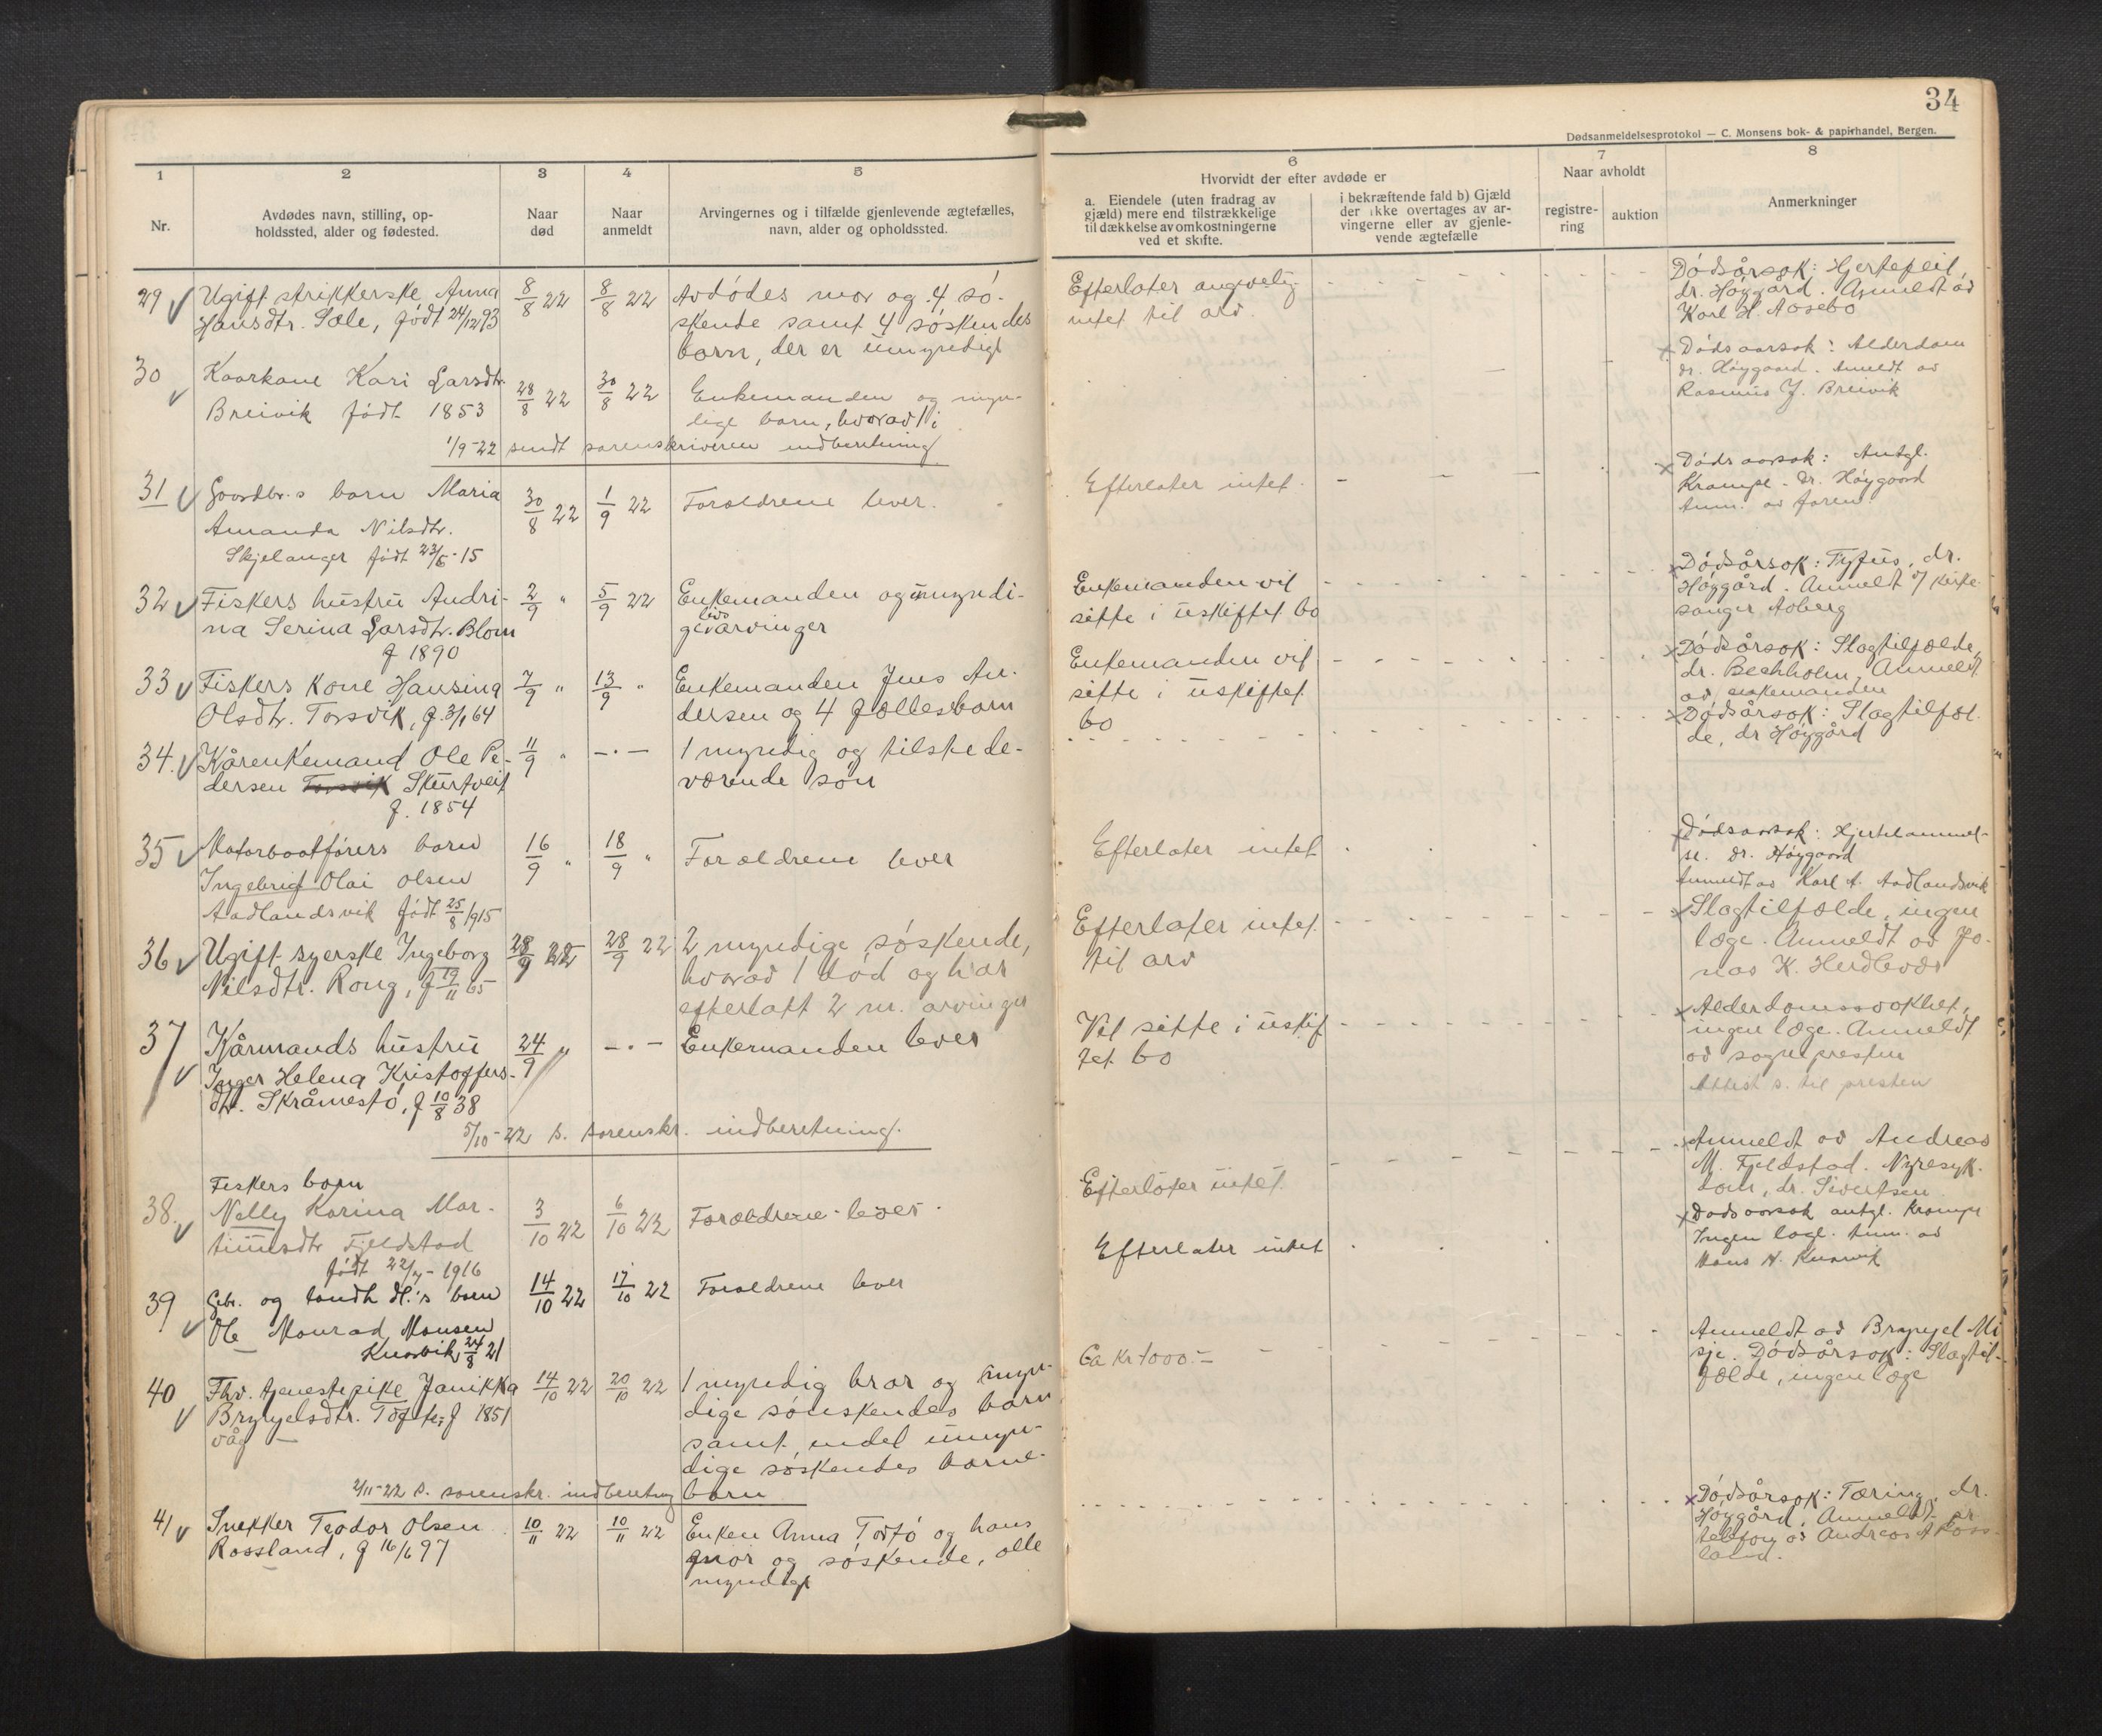 34
Dødsanmeldelsesprotokol — C. Monsens bok- & papirhandel, Bergen.
1
Nr.
2
Avdødes navn, stilling, op-
holdssted, alder og fødested.
3
Naar
død
4
Naar
anmeldt
5
Arvingernes og i tilfælde gjenlevende ægtefælles,
navn, alder og opholdssted.
6
Hvorvidt der efter avdøde er
a. Eiendele (uten fradrag av
gjæld) mere end tilstrækkelige
til dækkelse av omkostningerne
ved et skifte.
i bekræftende fald b) Gjæld
der ikke overtages av ar-
vingerne eller av gjenle-
vende ægtefælle
7
Naar avholdt
registre-
ring
auktion
8
Anmerkninger
29
Ugift strikkerske Anna
Hansdtr. Sæle, født 24/12 93
8/8 22
8/8 22
Avdødes mor og 4 sø-
skende samt 4 søskendes
barn, der er umyndige
Efterlater angivelig
intet til arv.
Dødsårsak: Hjertefeil,
dr. Høygård. Anmeldt av
Karl H. Åosebø
30
Kaarkone Kari Larsdtr.
Breivik født 1853
28/8 22
30/8 22
Enkemanden og myn-
dige barn, hvorav 1 i
Dødsaarsak: Alderdom
dr. Høygaard. Anmeldt av
Rasmus J. Breivik
1/9-22 sendt sorenskriveren indberetning
31
Gaardbr.s barn Maria
Amanda Nilsdtr.
Skjelanger født 23/6-15
30/8 22
1/9 22
Forældrene lever.
Efterlater intet.
Dødsaarsak: Antgl.
Krampe. Dr. Høygaard
Anm. av faren.
32
Fiskers hustru Andri-
na Serina Larsdtr. Blom
f 1890
2/9 "
5/9 22
Enkemanden og umyndi-
ge livsarvinger
Enkemanden vil
sitte i uskiftet bo
Dødsårsak: Tyfus, dr.
Høygård. Anmelt v/ kirke-
sanger Aoberg
33
Fiskers kone Hansina
Olsdtr. Torsvik, f. 3/1 64
7/9 "
13/9 "
Enkemanden Jens An-
dersen og 4 fællesbarn
Enkemanden vil
sitte i uskiftet
bo
Dødsårsak: Slagtilfælde,
dr. Bechholm. Anmeldt
av enkemanden
34.
Kårenkemand Ole Pe-
dersen Torsvik Skurtveit
f. 1854
11/9 "
— . —
1 myndig og tilstede-
værende søn
Dødsårsak: Slagtilfæl-
de, dr Høygård
35
Motorbaatførers barn
Ingebrigt Olai Olsen
Aadlandsvik født 25/8 1915
16/9 "
18/9 "
Forældrene lever
Efterlater intet
Dødsaarsak: Hjertelammel-
se. Dr. Høygaard
Anmeldt av Karl A. Aadlandsvik
36
Ugift syerske Ingeborg
Nilsdtr. Rong, f 19/11 65
28/9 22
28/9 22
2 myndige søskende,
hvorav 1 død og har
efterlatt 2 m. arvinger
Efterlater intet
til arv
Slagtilfælde, ingen
læge. Anmeldt av Jo-
nas K. Herdlevær
37
Kårmands hustru
Inger Helena Kristoffers-
dtr. Skråmestø, f 10/8 38
24/9 "
— . —
Enkemanden lever
Vil sitte i uskif
tet bo
Alderdomssvakhet,
ingen læge. Anmeldt
av sognepresten
Attest s. til presten
5/10-22 s. sorenskr. indberetning.
38.
Fiskers barn
Nelly Karina Mar-
tinusdtr Fjeldstad
født 22/7-1916
3/10 22
6/10 22
Forældrene lever.
Efterlater intet
Anmeldt av Andreas
M. Fjeldstad. Nyresyk-
dom, dr. Sivertsen
39
Gbr. og landh dl.'s barn
Ole Monrad Monsen
Kuvik 24/8 21
14/10 22
17/10 22
Forældrene lever
Efterlater intet
Dødsaarsak antgl. Krampe
Ingen læge. Anm. av
Hans N.
40
Fhv. tjenestepike Janikka
Brynjelsdtr. Tofte- f 1851
våg
14/10 22
20/10 22
1 myndig bror og myn-
dige søsskendes barn
samt endel umyn-
dige søskendes barne-
barn
Ca Kr 1000.-
Anmeldt av Brynjel Mi
sje. Dødsårsak: Slagtil-
fælde, ingen læge
2/11-22 s. sorenskr. indberetning
41
Snekker Teodor Olsen
Rossland, f 16/6 97
10/11 22
10/11 22
Enken Anna Torfø og hans
mor og søskende, alle
myndige
Dødsårsak: Tæring, dr.
Høygård. Anmeldt pr
telefon av Andreas A Ross-
land.